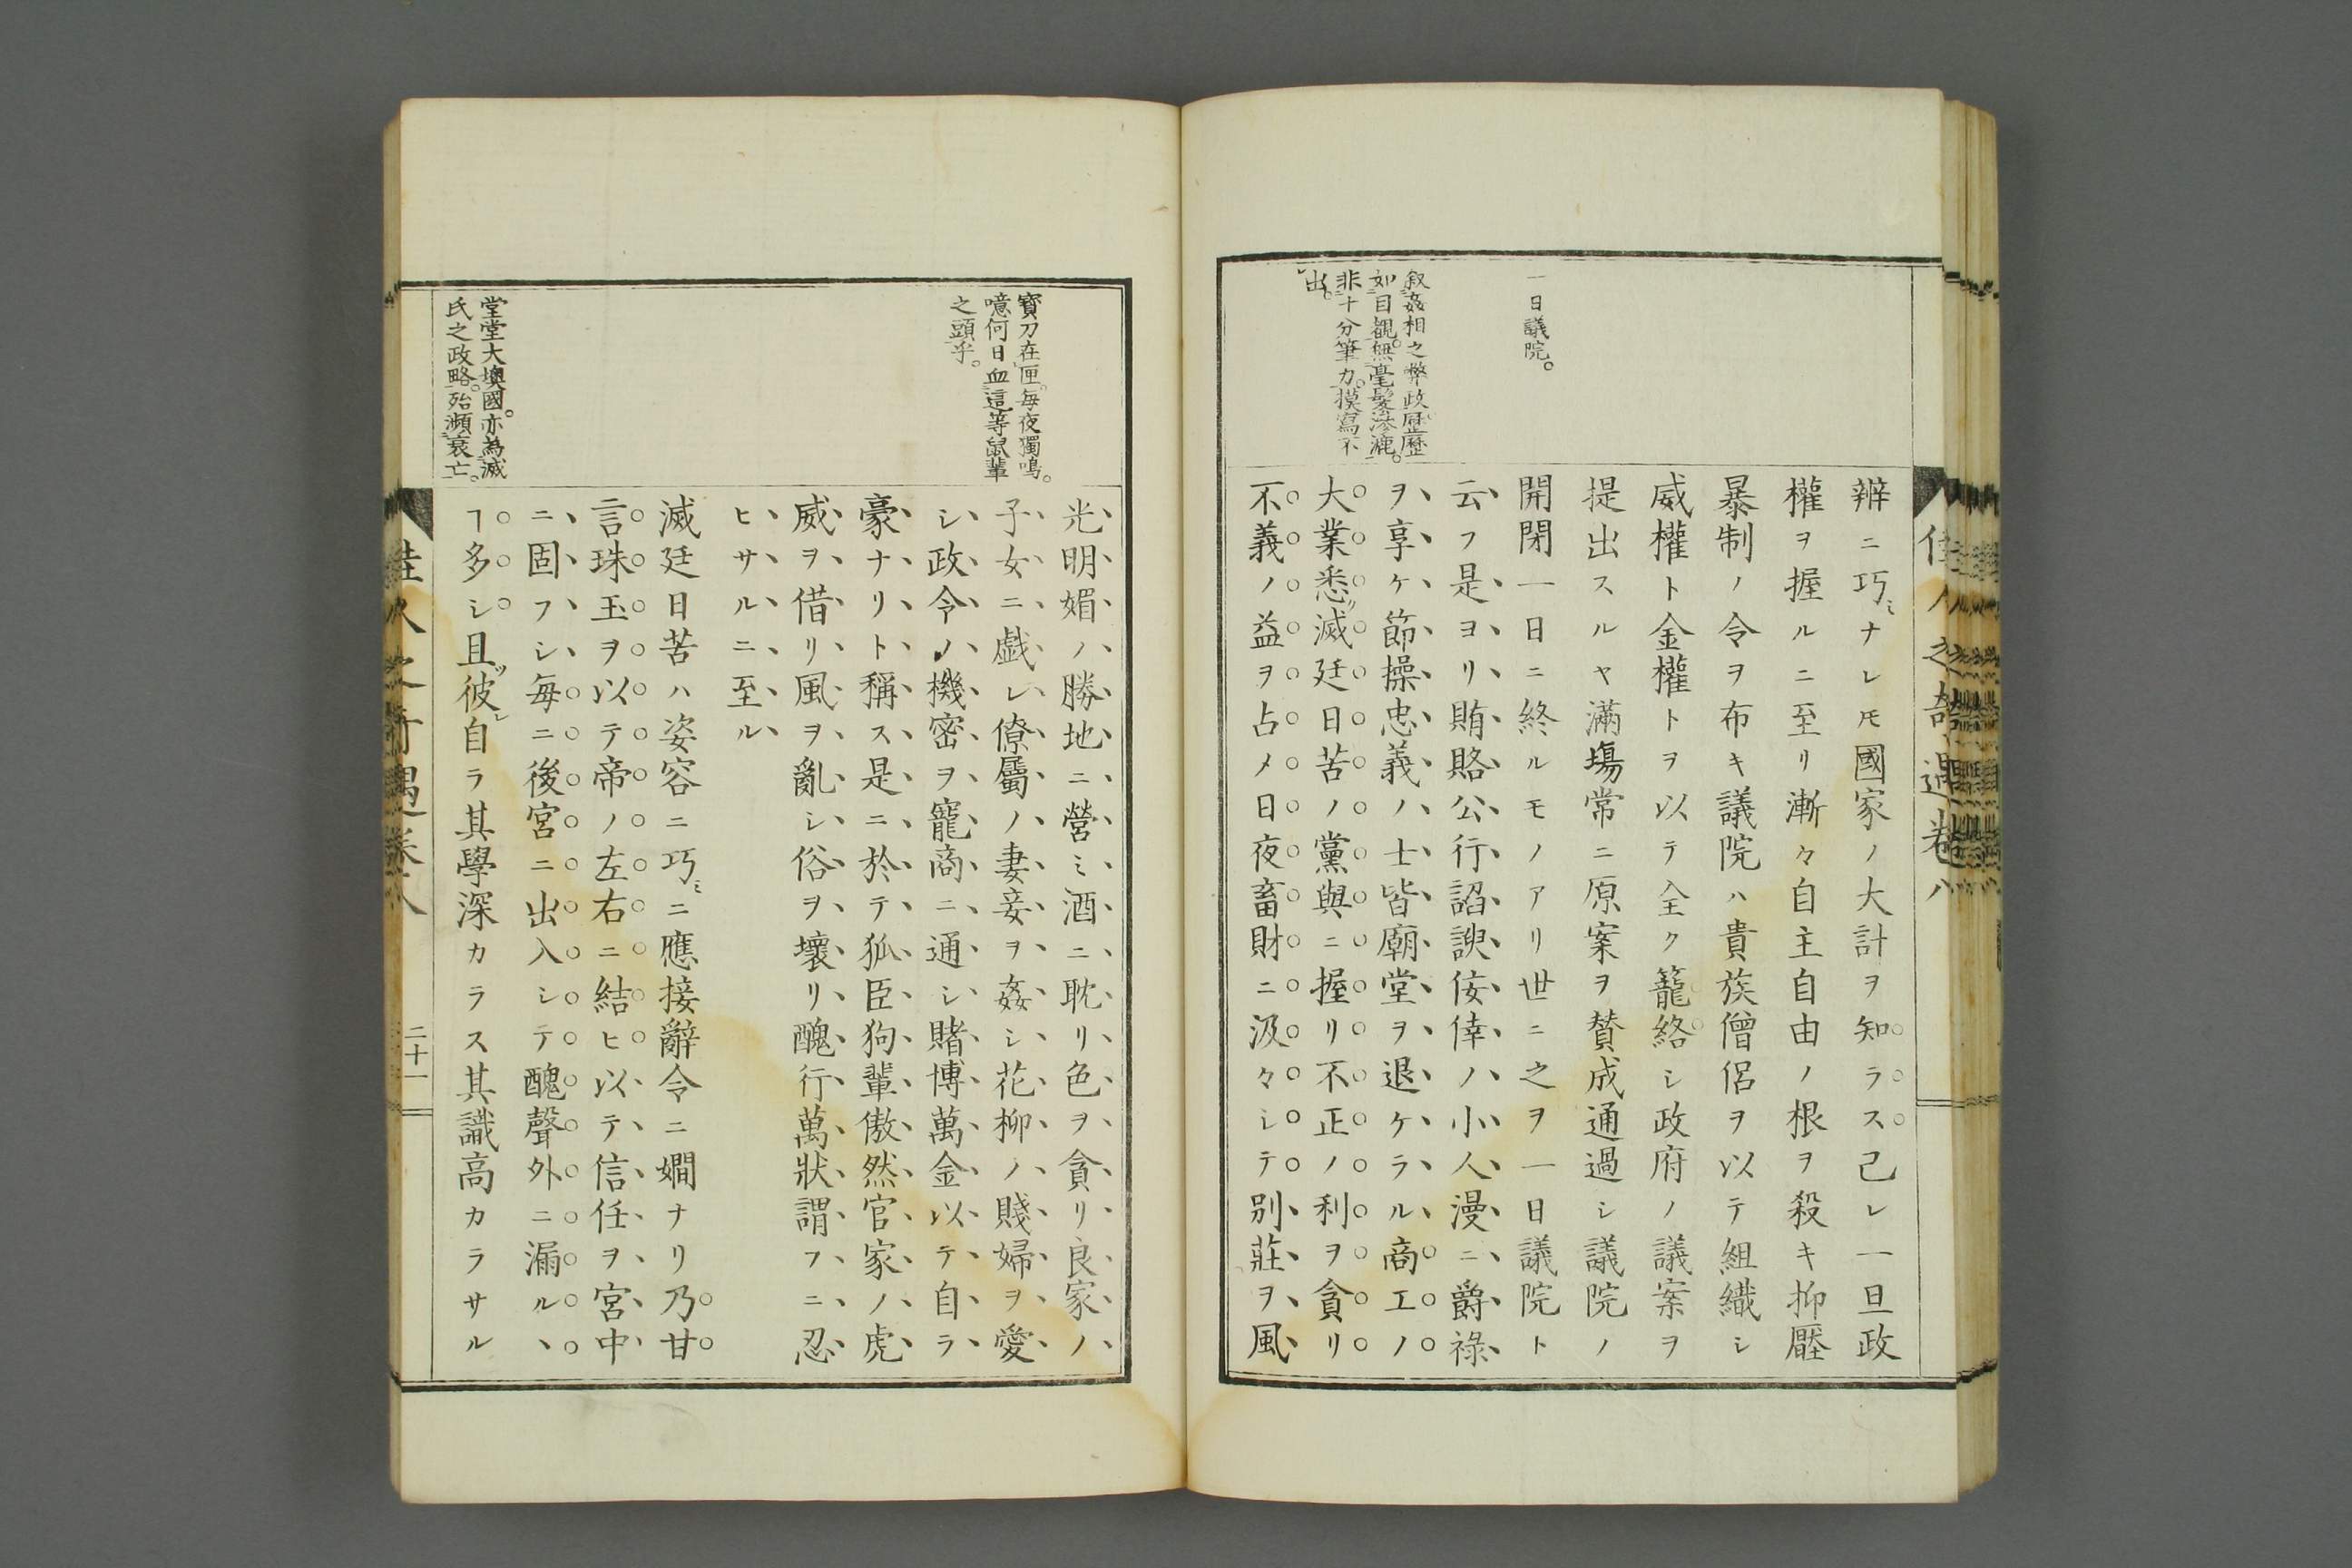 佳人之奇遇卷八
辨ニ巧ミナレモ國家ノ大計ヲ知ラス己レ一旦政
權ヲ握ルニ至リ漸々自主自由ノ根ヲ殺キ抑壓
暴制ノ令ヲ布キ議院ハ貴族僧侶ヲ以テ組織シ
威權ト金權トヲ以テ全ク籠絡シ政府ノ議案ヲ
提出スルヤ滿場常ニ原案ヲ賛成通過シ議院ノ
一日議院。
開閉一日ニ終ルモノアリ世ニ之ヲ一日議院ト
云フ是ヨリ賄賂公行諂諛佞倖ノ小人漫ニ爵祿
叙姦相之弊政歷歷
如目覩。無毫髮滲漉。
非十分筆力。摸寫不
出。
ヲ享ケ節操忠義ノ士皆廟堂ヲ退ケラル商工ノ
大業悉ク滅廷日苦ノ黨與ニ握リ不正ノ利ヲ貪リ
不義ノ益ヲ占メ日夜畜財ニ汲々シテ別莊ヲ風
光明媚ノ勝地ニ營ミ酒ニ耽リ色ヲ貪リ良家ノ
寳刀在匣。每夜獨鳴。
噫何日血這等鼠輩
之頭乎。
子女ニ戲レ僚屬ノ妻妾ヲ姦シ花柳ノ賤婦ヲ愛
シ政令ノ機密ヲ寵商ニ通シ賭博萬金以テ自ラ
豪ナリト稱ス是ニ於テ狐臣狗輩傲然官家ノ虎
威ヲ借リ風ヲ亂シ俗ヲ壞リ醜行萬狀謂フニ忍
ヒサルニ至ル
滅廷日苦ハ姿容ニ巧ミニ應接辭令ニ嫺ナリ乃甘
言珠玉ヲ以テ帝ノ左右ニ結ヒ以テ信任ヲ宮中
ニ固フシ每ニ後宮ニ出入シテ醜聲外ニ漏ルヽ
堂堂大墺國。亦為滅
氏之政略。殆瀕衰亡。
ヿ多シ且ツ彼レ自ラ其學深カラス其識高カラサル
佳人之奇遇卷八
二十一